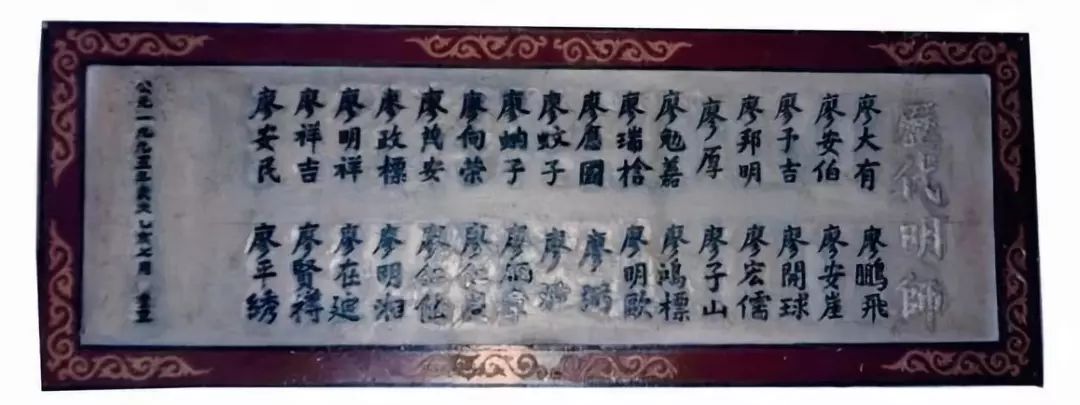 歷代明師
廖大有
廖安伯
廖予吉
廖邦明
廖厚
廖勉
廖瑞
廖應國
廖蚊子
廖蚋子
廖向荣
廖茂安
廖政標
廖明祥
廖祥吉
廖安民
廖鵬飛
廖安崖
廖開球
廖宏儒
廖子山
廖鴻標
廖明歐
廖弼
廖
廖炳
廖仁
廖仁
廖明湘
廖在廷
廖賢得
廖平绣
公元一九九五年歲次乙亥七月